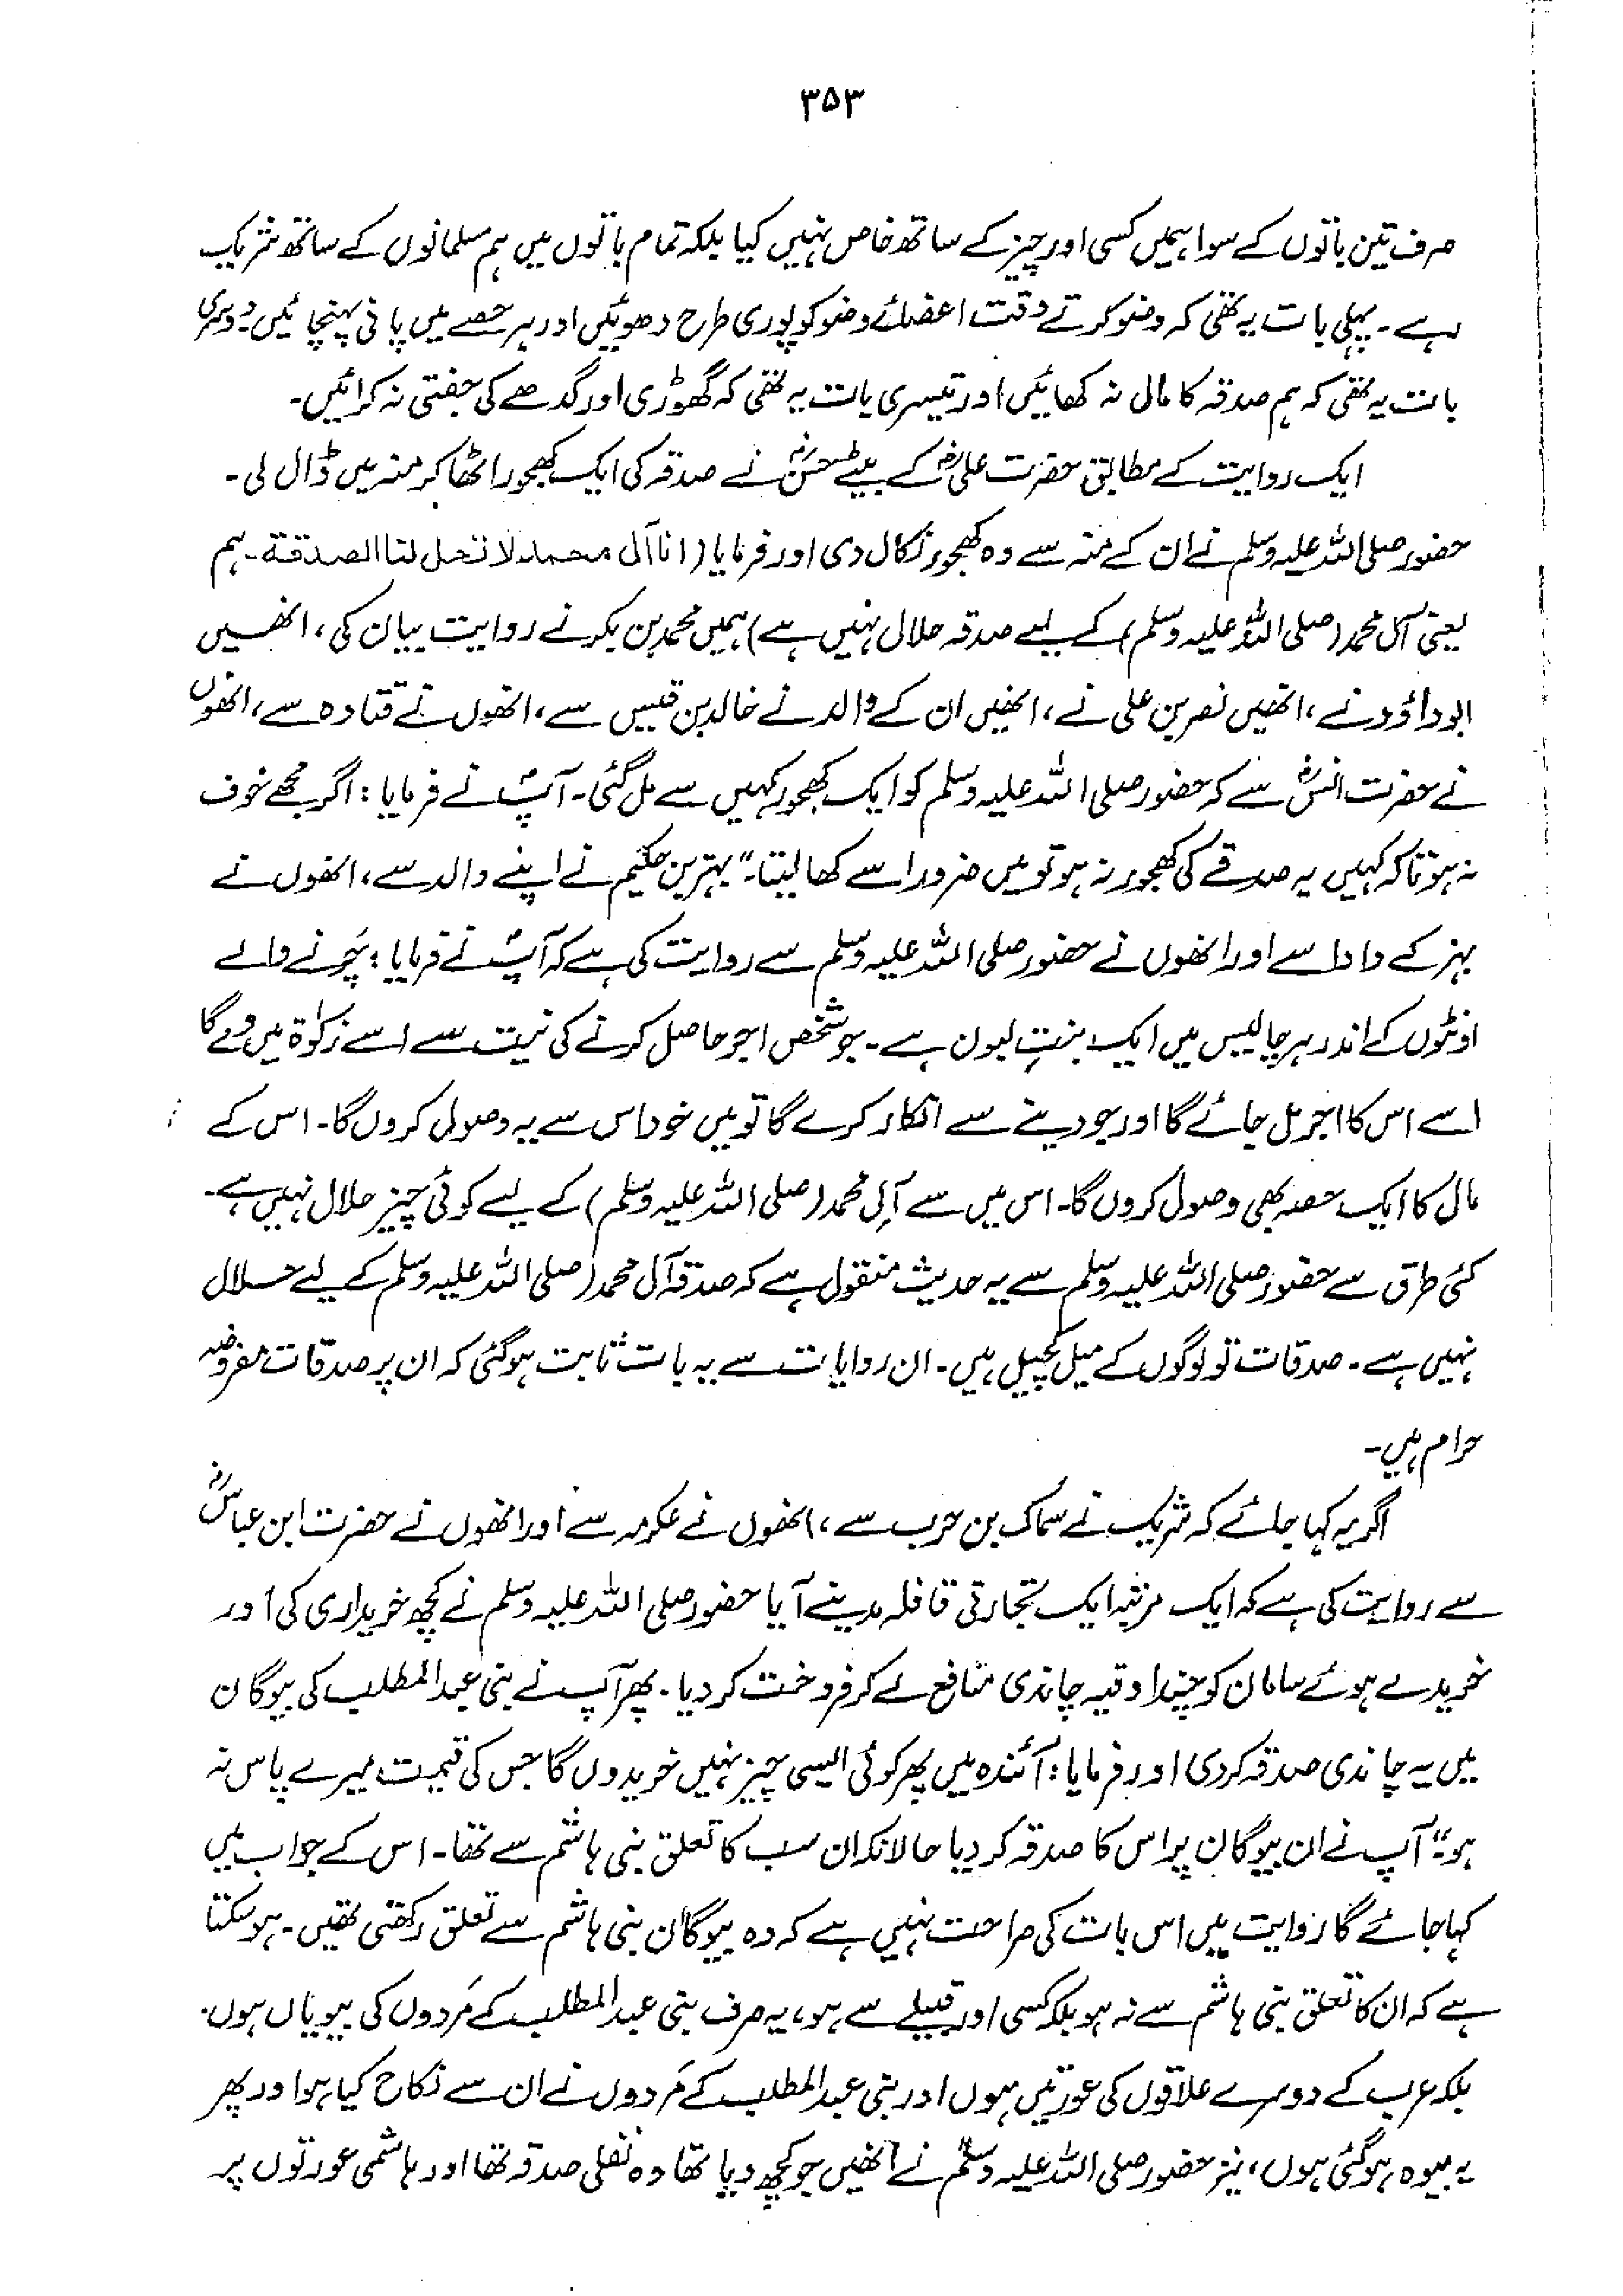 ۳۵۳
صرف تین باتوں کے سوا ہمیں کسی اور چیز کے ساتھ خاص نہیں کیا بلکہ تمام باتوں میں ہم مسلمانوں کے ساتھ شریک
ہے۔ پہلی بات یہ تھی کہ وضو کرتے وقت اعضائے وضو کو پوری طرح دھوئیں اور ہر حصے میں پانی پہنچائیں۔ دوسری
بات یہ تھی کہ ہم صدقہ کا مال نہ کھائیں اور تیسری بات یہ تھی کہ گھوڑی اور گدھے کی جفتی نہ کرائیں۔
ایک روایت کے مطابق حضرت علیؓ کے بیٹے حسنؓ نے صدقہ کی ایک کھجور اٹھا کر منہ میں ڈال لی۔
حضور صلی اللہ علیہ وسلم نے ان کے منہ سے وہ کھجور نکال دی اور فرمایا (انا آل محمد لا تحل لنا الصدقة۔ ہم
یعنی آل محمد (صلی اللہ علیہ وسلم) کے لیے صدقہ حلال نہیں ہے) ہمیں محمد بن بکر نے روایت بیان کی، انھیں
ابوداؤد نے، انھیں نصر بن علی نے، انھیں ان کے والد نے خالد بن قیس سے، انھوں نے قتادہ سے، انھوں
نے حضرت انسؓ سے کہ حضور صلی اللہ علیہ وسلم کو ایک کھجور کہیں سے مل گئی۔ آپؐ نے فرمایا: اگر مجھے خوف
نہ ہوتا کہ کہیں یہ صدقے کی کھجور نہ ہو تو میں ضرور اسے کھا لیتا۔" بہز بن حکیم نے اپنے والد سے، انھوں نے
بہز کے دادا سے اور انھوں نے حضور صلی اللہ علیہ وسلم سے روایت کی ہے کہ آپؐ نے فرمایا: چرنے والے
اونٹوں کے اندر ہر چالیس میں ایک بنتِ لبون ہے۔ جو شخص اجر حاصل کرنے کی نیت سے اسے زکوٰۃ میں دے گا
اسے اس کا اجر مل جائے گا اور جو دینے سے انکار کرے گا تو میں خود اس سے یہ وصول کروں گا۔ اس کے
مال کا ایک حصہ بھی وصول کروں گا۔ اس میں سے آلِ محمد (صلی اللہ علیہ وسلم) کے لیے کوئی چیز حلال نہیں ہے۔
کئی طرق سے حضور صلی اللہ علیہ وسلم سے یہ حدیث منقول ہے کہ صدقہ آل محمد (صلی اللہ علیہ وسلم کے لیے حلال
نہیں ہے۔ صدقات تو لوگوں کے میل کچیل ہیں۔ ان روایات سے یہ بات ثابت ہو گئی کہ ان پر صدقات مفروضہ
حرام ہیں۔
اگر یہ کہا جائے کہ شریک نے سماک بن حرب سے، انھوں نے عکرمہ سے اور انھوں نے حضرت ابن عباسؓ
سے روایت کی ہے کہ ایک مرتبہ ایک تجارتی قافلہ مدینے آیا حضور صلی اللہ علیہ وسلم نے کچھ خریداری کی اور
خریدے ہوئے سامان کو چند اوقیہ چاندی منافع لے کر فروخت کر دیا۔ پھر آپ نے بنی عبدالمطلب کی بیوگان
میں یہ چاندی صدقہ کر دی اور فرمایا: آئندہ میں پھر کوئی ایسی چیز نہیں خریدوں گا جس کی قیمت میرے پاس نہ
ہو" آپ نے ان بیوگان پر اس کا صدقہ کر دیا حالانکہ ان سب کا تعلق بنی ہاشم سے تھا۔ اس کے جواب میں
کہا جائے گا روایت میں اس بات کی صراحت نہیں ہے کہ وہ بیوگان بنی ہاشم سے تعلق رکھتی تھیں۔ ہو سکتا
ہے کہ ان کا تعلق بنی ہاشم سے نہ ہو بلکہ کسی اور قبیلے سے ہو، یہ صرف بنی عبدالمطلب کے مَردوں کی بیویاں ہوں۔
بلکہ عرب کے دوسرے علاقوں کی عورتیں ہوں اور بنی عبدالمطلب کے مَردوں نے ان سے نکاح کیا ہو اور پھر
یہ بیوہ ہو گئی ہوں، نیز حضور صلی اللہ علیہ وسلم نے انھیں جو کچھ دیا تھا وہ نفلی صدقہ تھا اور ہاشمی عورتوں پر